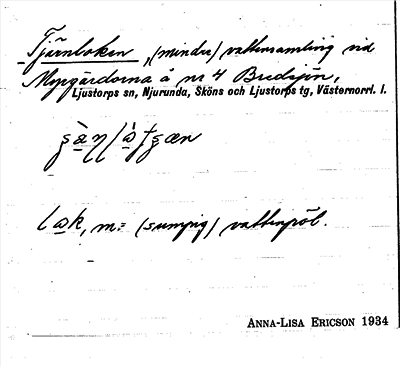 Tjärnboken, (mindre) vattensamling vid
Myrgårdarna å, nr 4 Bredsjön,
Ljustorps sn, Njurunda, Sköns och Ljustorps tg, Västernorrl. l.
lɷk, m = (sumpig) vattenpöl.
ANNA-LISA ERICSON 1934